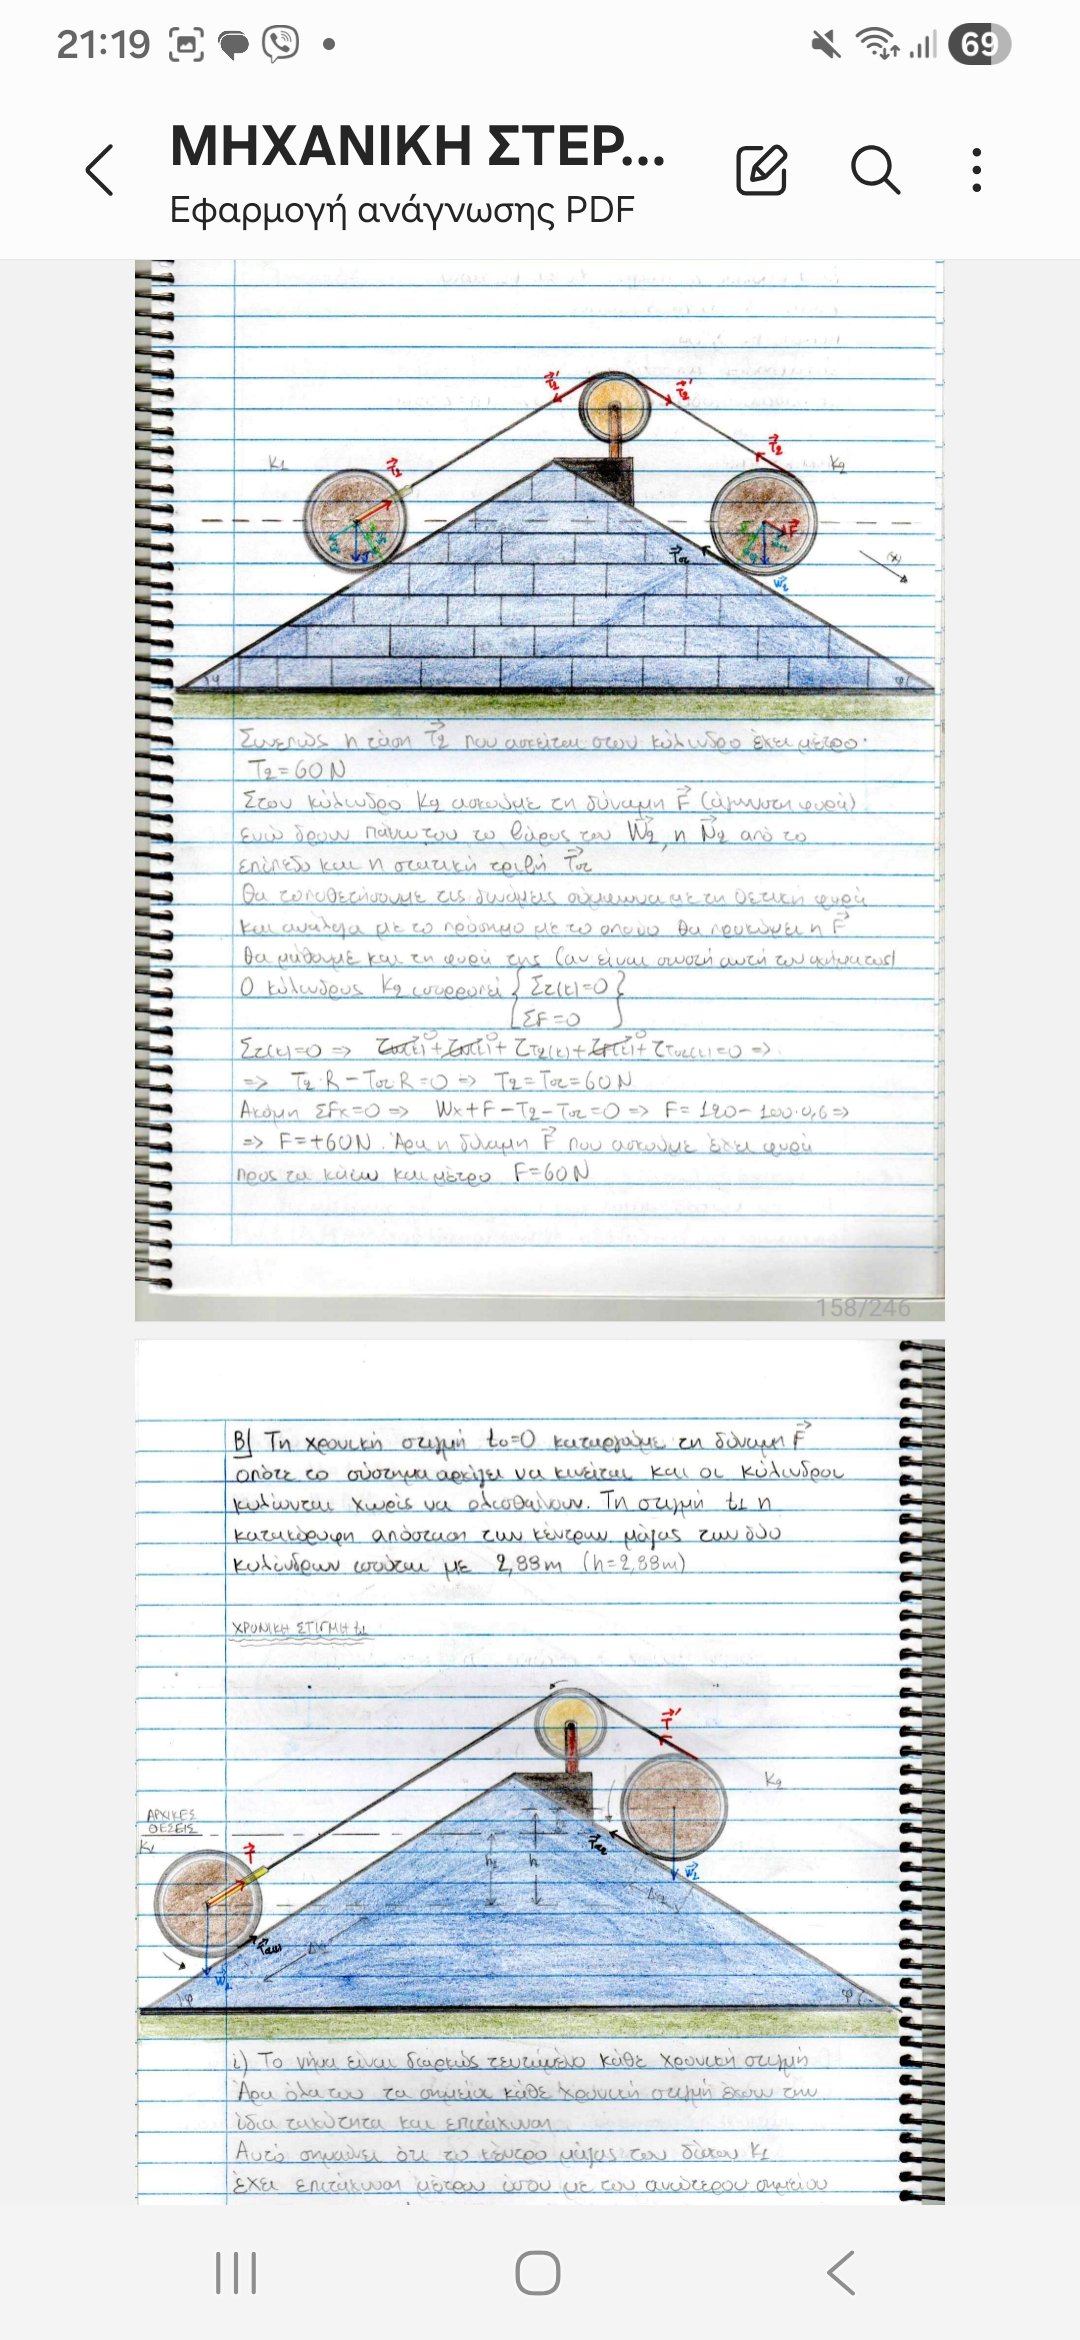 21:19
69
ΜΗΧΑΝΙΚΗ ΣΤΕΡ...
Εφαρμογή ανάγνωσης PDF
T₂' T₂'
K₁ T₁ T₂ K₂
F
Tστ W₂ (x)
φ φ
Συνεπώς η τάση T₂ που ασκείται στον κύλινδρο έχει μέτρο·
T₂=60N
Στον κύλινδρο K₂ ασκούμε τη δύναμη F (άγνωστη φορά)
ενώ δρουν πάνω του το βάρος του W₂, η N₂ από το
επίπεδο και η στατική τριβή Tστ
Θα τοποθετήσουμε τις δυνάμεις σύμφωνα με τη θετική φορά
και ανάλογα με το πρόσημο με το οποίο θα προκύψει η F
θα μάθουμε και τη φορά της (αν είναι σωστή αυτή του σχήματος)
Ο κύλινδρος K₂ ισορροπεί { Στ(κ)=0 }
ΣF=0
Στ(κ)=0 => + + τT₂(κ) + + τTστ(κ)=0 =>
=> T₂R-TστR=0 => T₂=Tστ=60N
Ακόμη ΣFx=0 => Wx+F-T₂-Tστ=0 => F=120-100·0,6 =>
=> F=+60N. Άρα η δύναμη F που ασκούμε έχει φορά
προς τα κάτω και μέτρο F=60N
158/246
B) Τη χρονική στιγμή t₀=0 καταργούμε τη δύναμη F
οπότε το σύστημα αρχίζει να κινείται και οι κύλινδροι
κυλίονται χωρίς να ολισθαίνουν. Τη στιγμή t₁ η
κατακόρυφη απόσταση των κέντρων μάζας των δύο
κυλίνδρων ισούται με 2,88m (h=2,88m)
ΧΡΟΝΙΚΗ ΣΤΙΓΜΗ t₁
T'
K₂
ΑΡΧΙΚΕΣ
ΘΕΣΕΙΣ
K₁ T
h₁ h
W₂
W₁
φ φ
i) Το νήμα είναι διαρκώς τεντωμένο κάθε χρονική στιγμή
Άρα όλα του τα σημεία κάθε χρονική στιγμή έχουν την
ίδια ταχύτητα και επιτάχυνση
Αυτό σημαίνει ότι το κέντρο μάζας του δίσκου K₁
έχει επιτάχυνση μέτρου ίσου με του ανώτερου σημείου